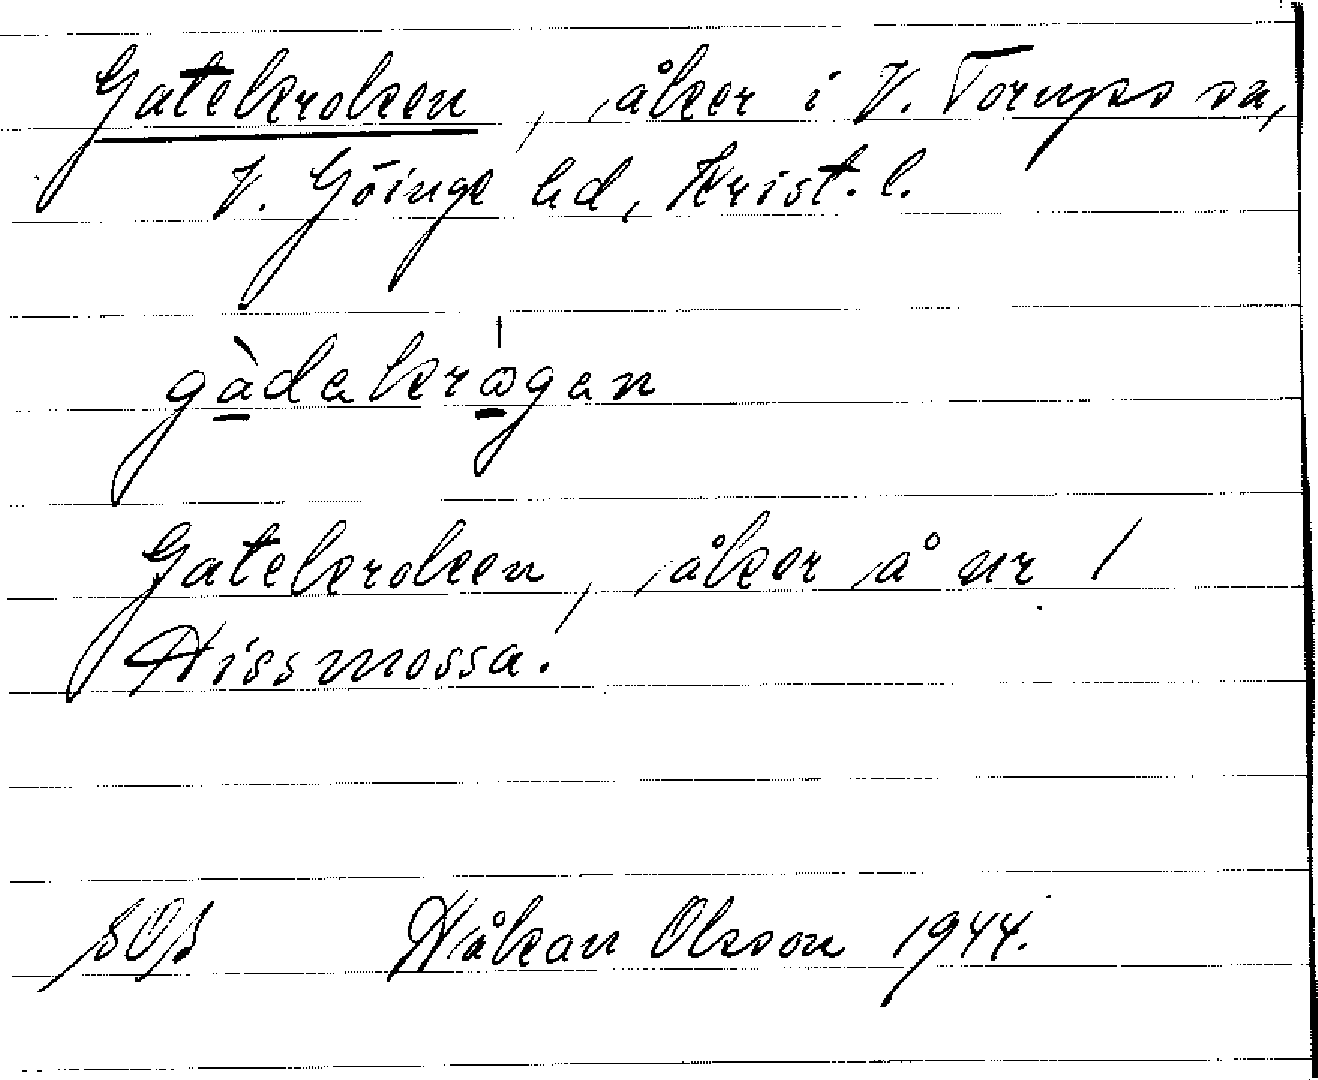 Gatekroken, åker i V. Torups sn,
V. Göinge hd, Krist. l.
gàdakrogan
Gatekroken, åker å nr 1
Hissmossa.
Håkan Olsson 1944.